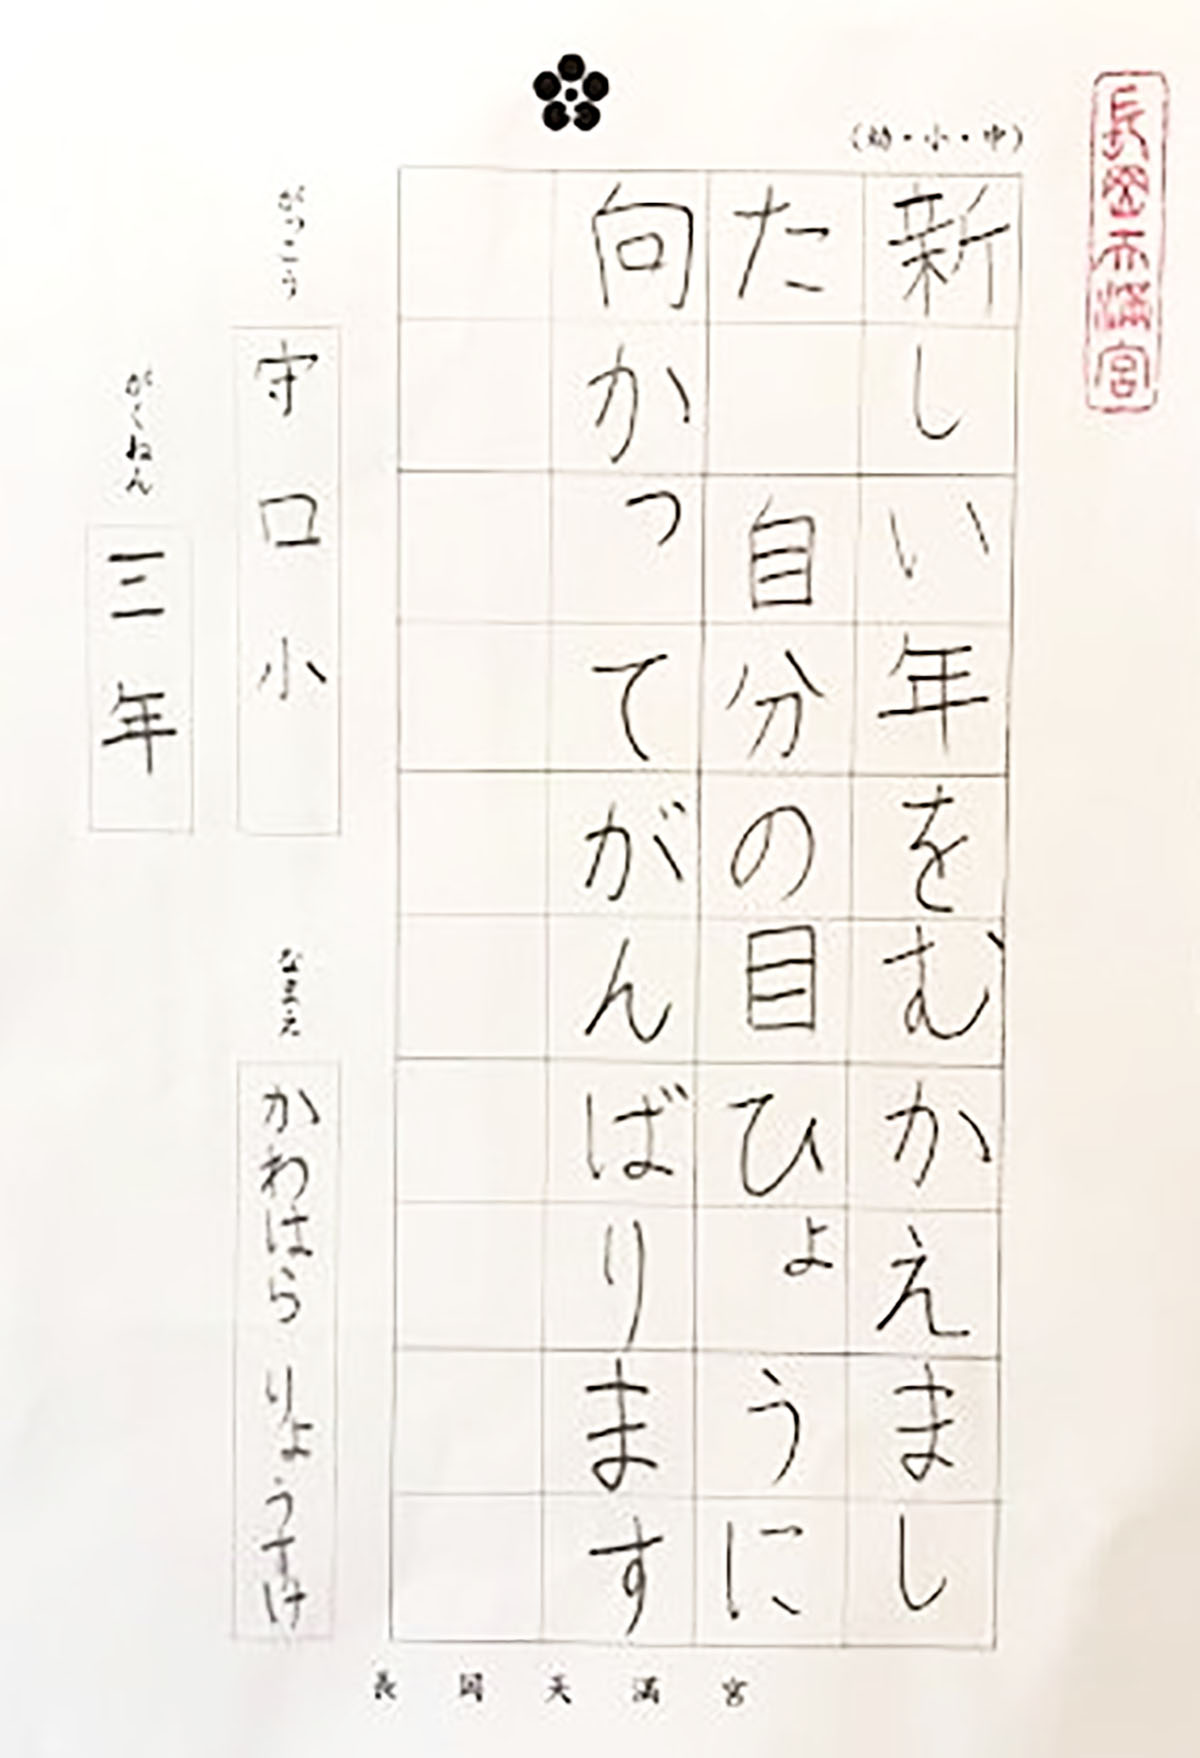 長岡天満宮
(幼・小・中)
新しい年をむかえまし
た 自分の目ひょうに
向かってがんばります
がっこう
守口小
なまえ
かわはらりょうすけ
がくねん
三年
長岡天満宮